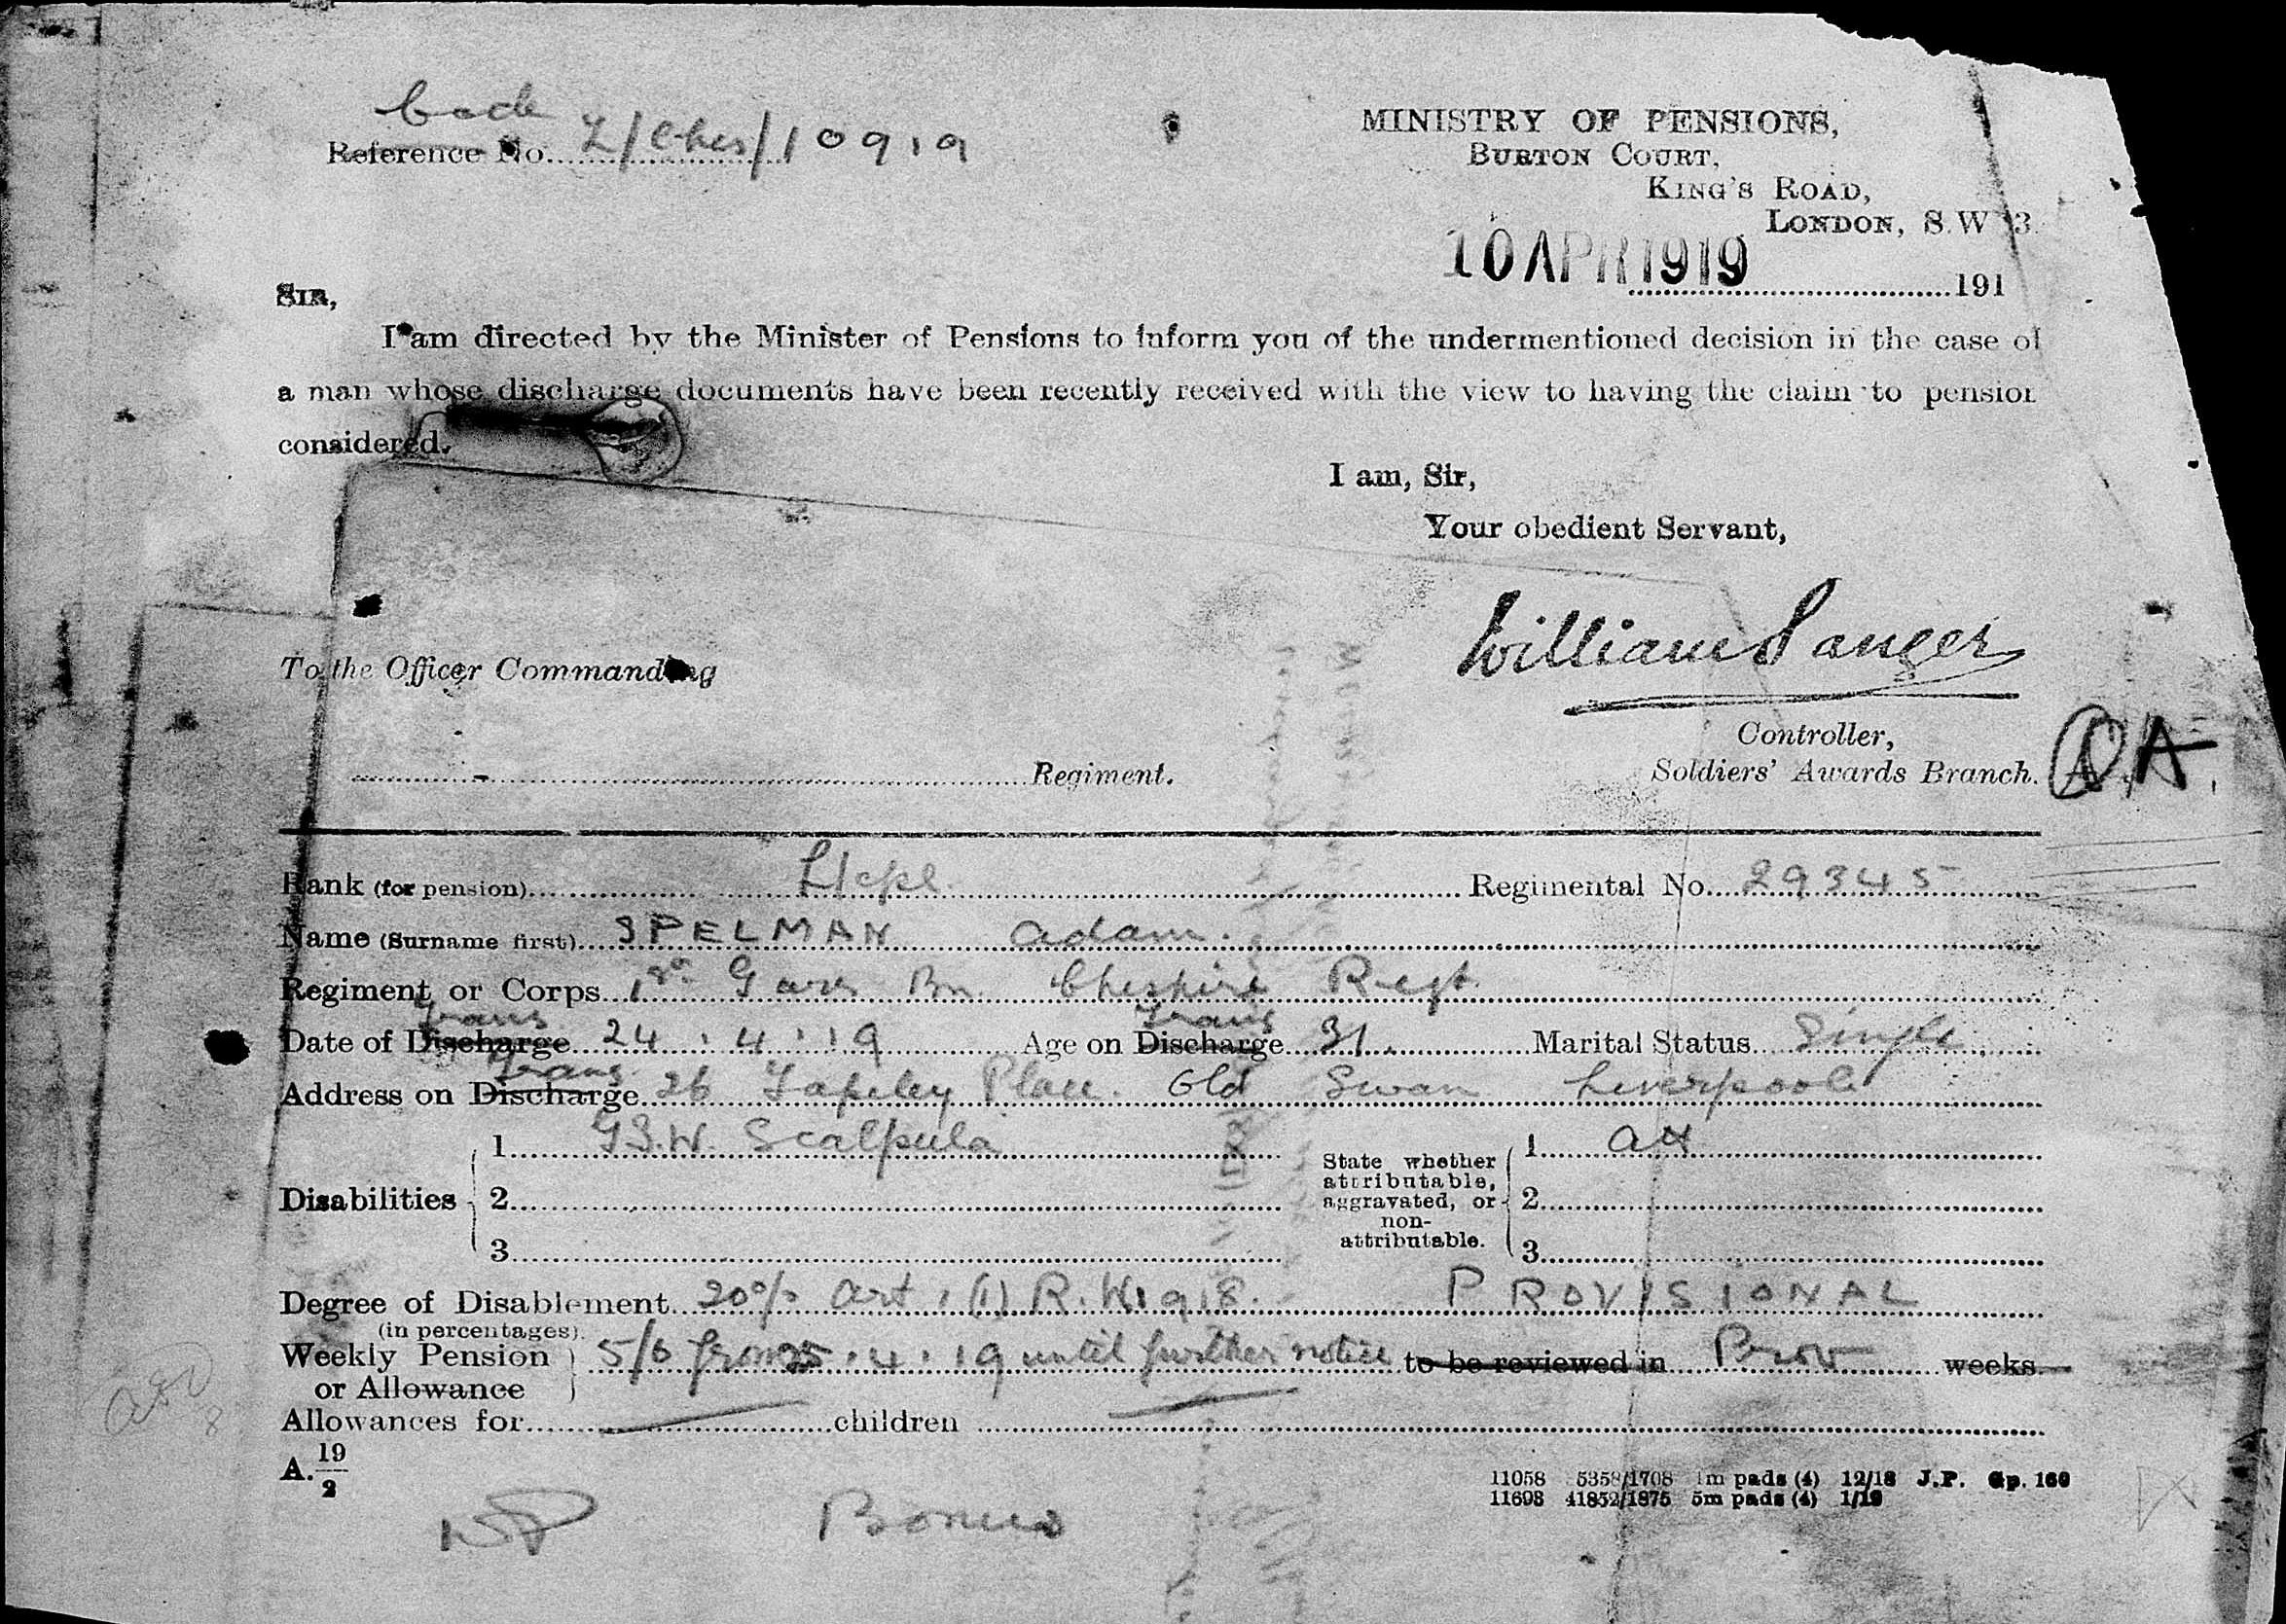 Code
Reference No. Z/Ches/10919
MINISTRY OF PENSIONS,
BURTON COURT,
KING'S ROAD,
LONDON, S.W 3.
10 APR 1919
191
SIR,
I am directed by the Minister of Pensions to inform you of the undermentioned decision in the case of
a man whose discharge documents have been recently received with the view to having the claim to pension
considered.
I am, Sir,
Your obedient Servant,
William Sanger
To the Officer Commanding
Controller,
Regiment.
Soldiers' Awards Branch.
A.
Rank (for pension) L/cpl. Regimental No. 29345
Name (Surname first) SPELMAN Adam.
Regiment or Corps 1st Garr Bn. Cheshire Regt.
trans trans
Date of Discharge 24.4.19 Age on Discharge 31. Marital Status Single
trans
Address on Discharge 26 Tapeley Place. Old Swan Liverpool
1 G.S.W. Scalpula
State whether attributable, aggravated, or non-attributable.
1 att
Disabilities 2 2
3 3
Degree of Disablement 20% Art. (1) R.W. 1918. PROVISIONAL
(in percentages).
Weekly Pension or Allowance 5/6 from 25.4.19 until further notice to be reviewed in Prov weeks
Allowances for children
A. 19/2
11058 5358/1708 1m pads (4) 12/18 J.P. Gp. 160
11693 41852/1875 5m pads (4) 1/19
Bonus